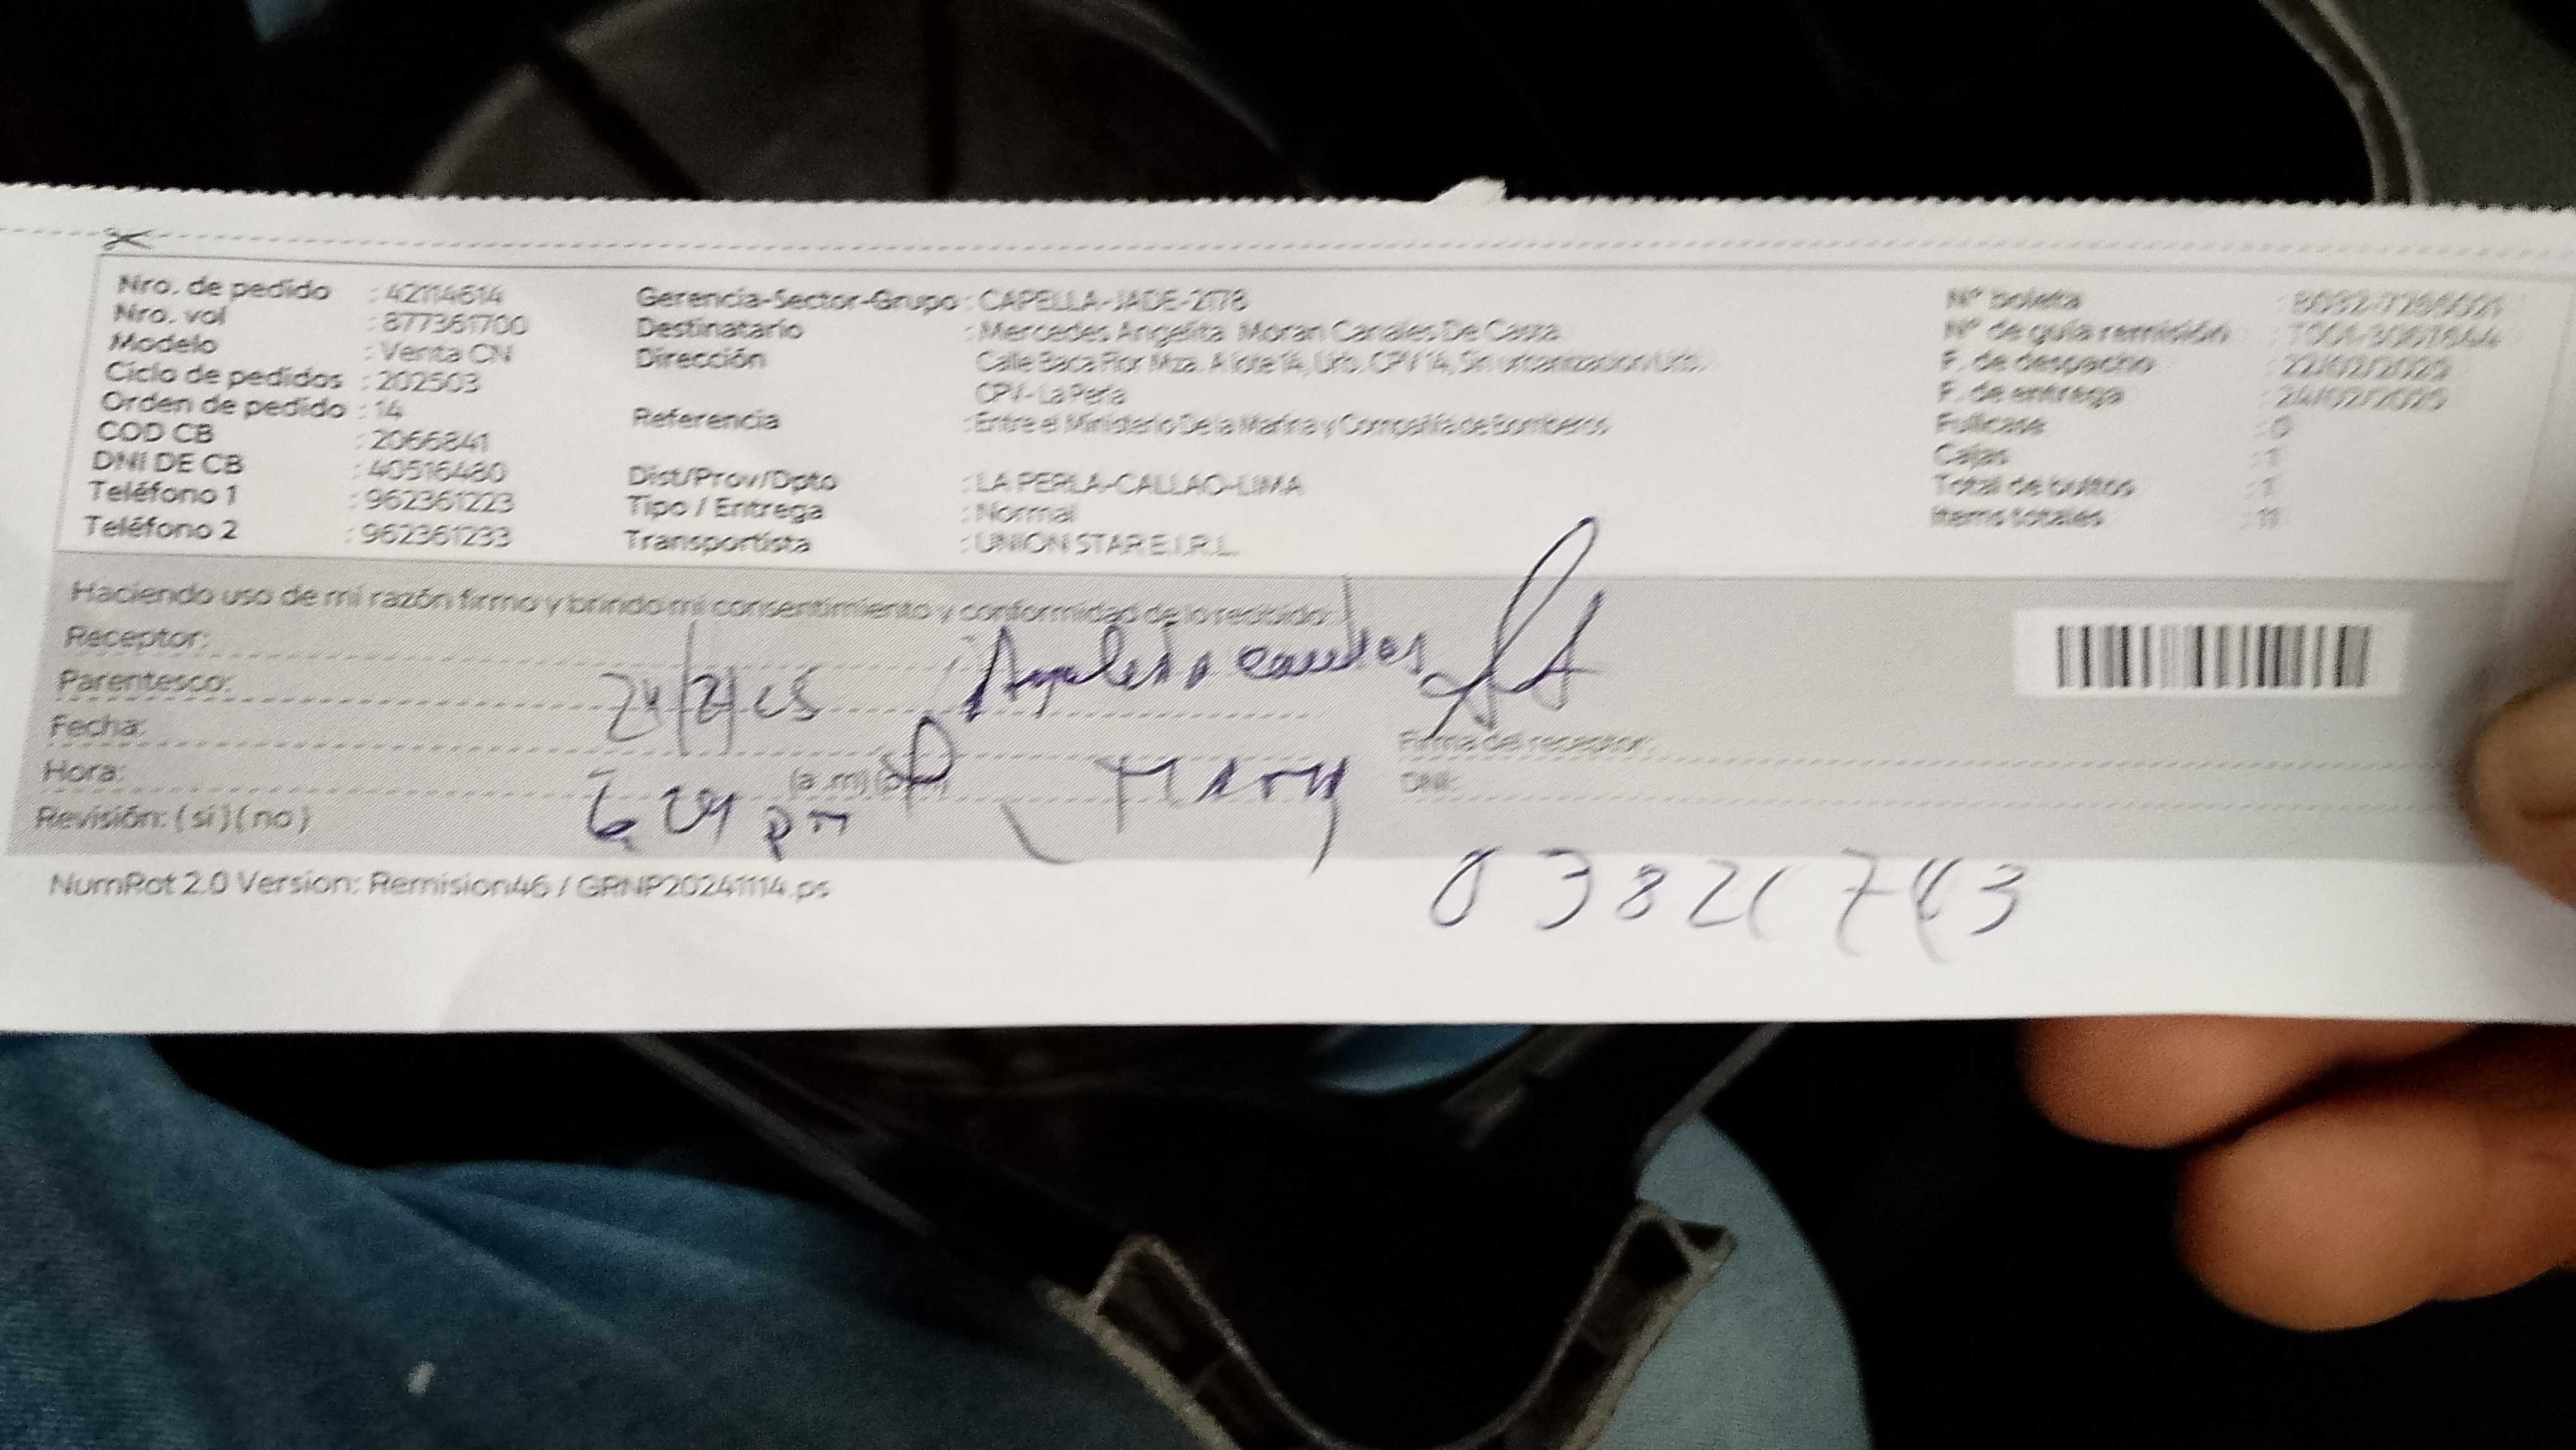 Nro. de pedido : 42114614
Nro. vol : 877361700
Modelo : Venta CN
Ciclo de pedidos : 202503
Orden de pedido : 14
COD CB : 2066841
DNI DE CB : 40516480
Teléfono 1 : 962361223
Teléfono 2 : 962361233
Gerencia-Sector-Grupo : CAPELLA-JADE-2178
Destinatario : Mercedes Angelita Moran Canales De
Dirección : Calle Baca Flor Mza. A lote 14, Urb. CPV 14, Sin urbanizacion/Urb.
CPV-La Perla
Referencia : Entre el Ministerio De la Marina y Compañía de Bomberos
Dist/Prov/Dpto : LA PERLA-CALLAO-LIMA
Tipo / Entrega : Normal
Transportista : UNION STAR E.I.R.L.
Nº boleta
Nº de guía remisión
F. de despacho : 22/02/2025
F. de entrega : 24/02/2025
Fullcase : 0
Cajas : 1
Total de bultos : 1
Items totales : 11
Haciendo uso de mi razón firmo y brindo mi consentimiento y conformidad de lo recibido:
Receptor:
Parentesco:
24/2/25
Fecha:
Hora: (a.m)
6 29 pm
Revisión: (si)(no)
Firma del receptor:
DNI:
NumRot 2.0 Version: Remision46 / GRNP20241114.ps